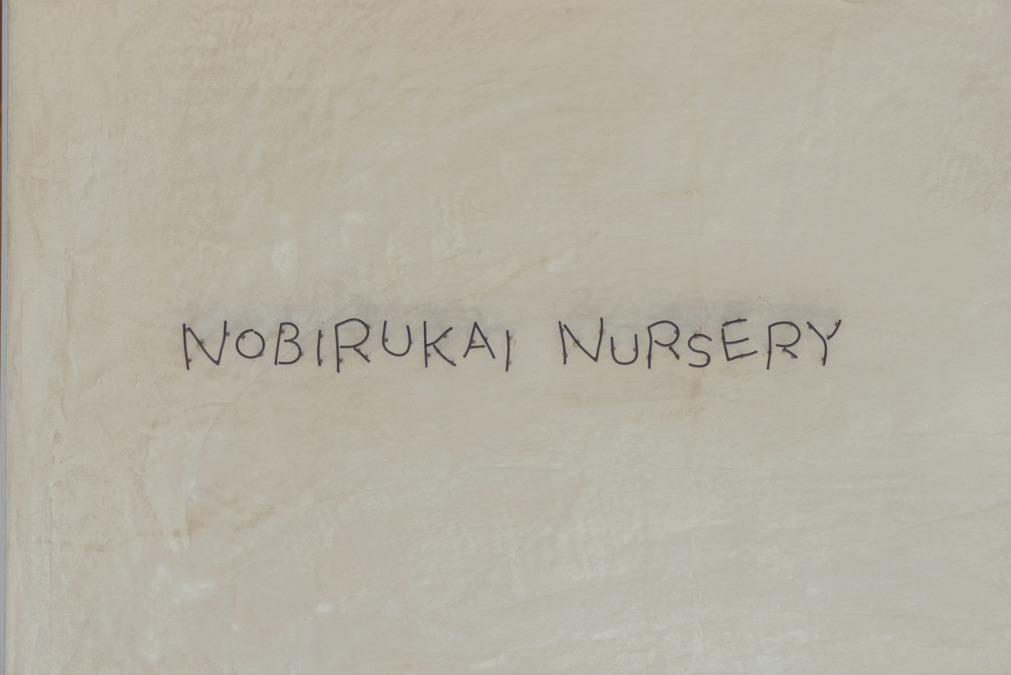 NOBIRUKAI NURSERY